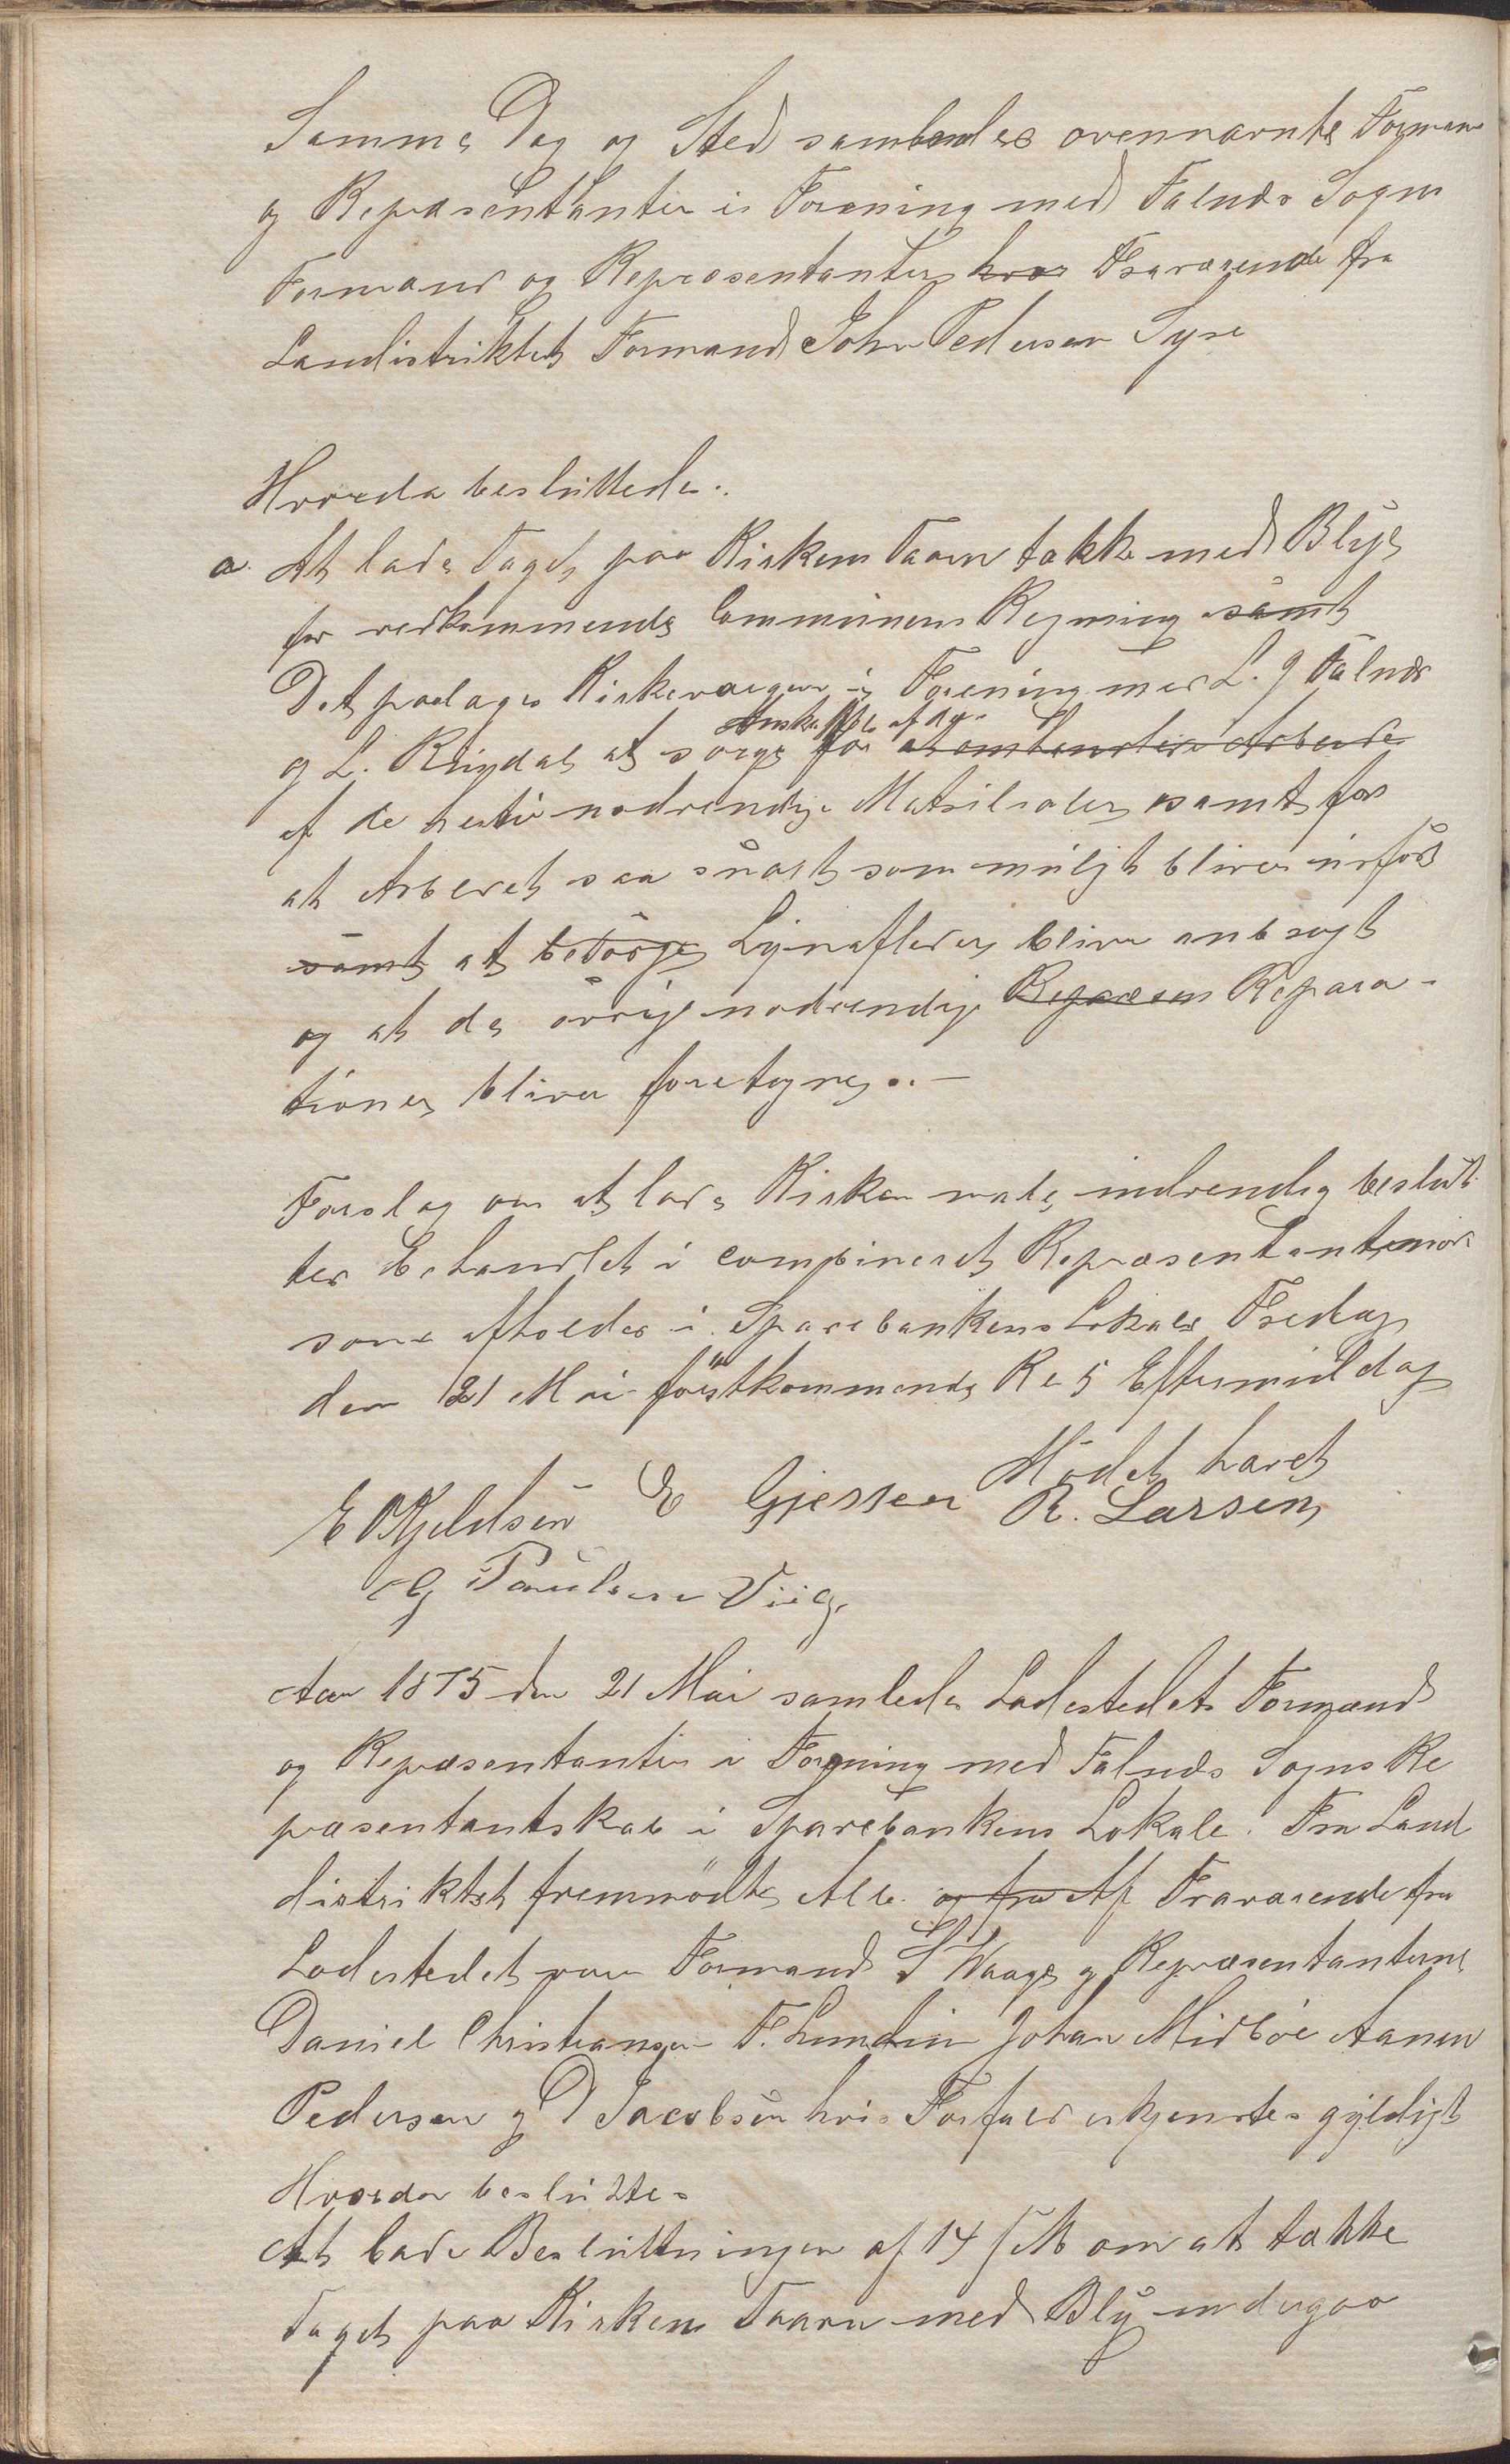 Samme Dag og Sted samledes ovennævnte Formænd
og Repræsentanter i Forening med Falnæs Sogns
Formænd og Repræsentanter hvor Fraværende fra
Landistriktet Formand John Pedersen Syre
Hvorda besluttedes.
a. At lade Taget paa Kirkens Taarn tække med Blye
for vedkommende Communers Regning samt
Det paalages Kirkeværgen i Forening med L. J Falnæs
og L. Ringdal at sørge for Anskaffelse af dy.
af de hertil nødvendige Matrialier samt for
at Arbeidet saa snart som muligt bliver udført
samt at besørge Lynafleder bliver anbragt
og at de øvrige nødvendige Repræsen Repara-
tioner bliver foretagne. -
Forslag om at lade Kirken male indvendig beslut-
tes behandlet i combineret Repræsentantmøde
som afholdes i Sparebankens Lokale Fredag
den 21 Mai førstkommende Kl 5 Eftermiddag
Mødet hævet
E Kjeldsen E Gjessen R. Larsen
G Paulsen Viig
Aar 1875 den 21 Mai samledes Ladestedets Formænd
og Repræsentanter i Forening med Falnæs Sogns Re
præsentantskab i Sparebankens Lokale. Fra Land
distriktet fremmødte Alle. og fra Af Fraværende fra
Ladestedet var Formand S Waage og Repræsentanterne
Daniel Christiansen F. Lundin Johan Midbøe Aanen
Pedersen og D Jacobsen hvis Forfald erkjendtes gyldigt
Hvorda besluttes
At lade Beslutningen af 14 ds om at tække
Taget paa Kirkens Taarn med Bly undergaa